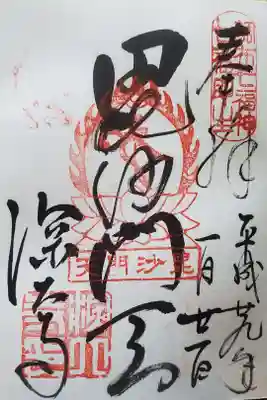 調布七福神
奉拝
平成廿九年
一月廿一日
毘沙門天
毘沙門天
深大寺